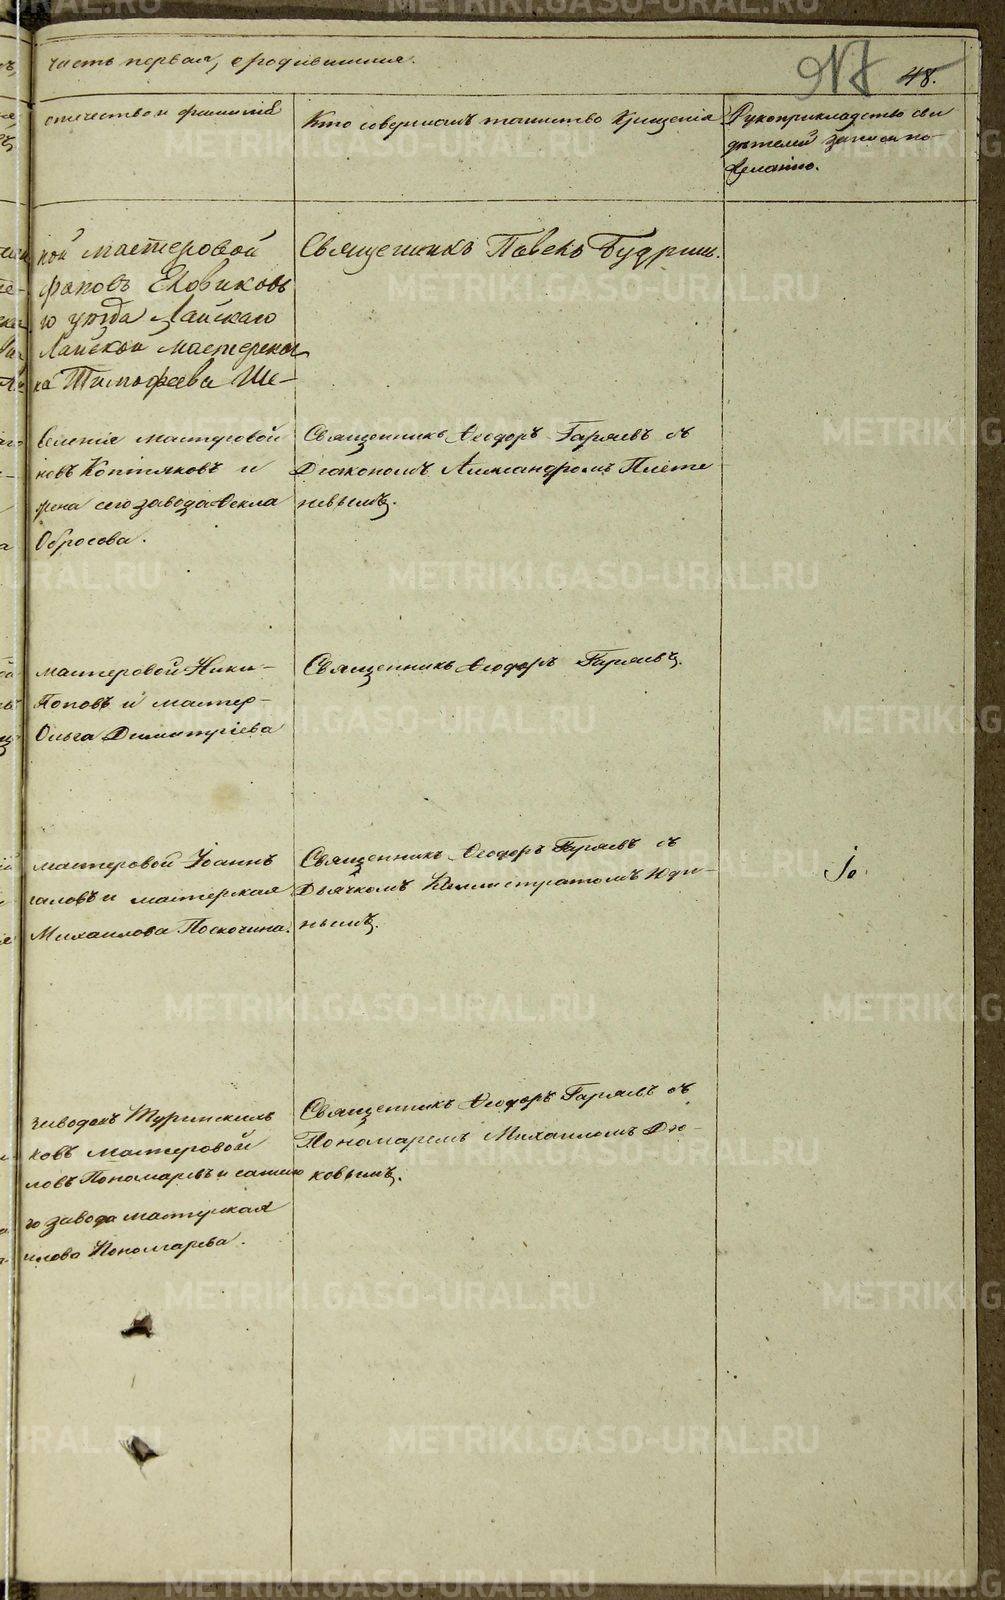 часть первая, о родившихся.
48.
отчество и фамилія
Кто совершалъ таинство Крещенія
Рукоприкладство сви
дѣтелей записи по
желанію.
ной мастеровой
фановъ Еловиковъ
го уѣзда Лайскаго
Лайской мастерска
на Тимофеева Ше-
Священникъ Павелъ Будрин.
веленіе мастеровой
новъ Копытяковъ и
жена сего завода Ѳекла
Обросова.
Священникъ Ѳеодоръ Гаряевъ съ
Діакономъ Александромъ Плете
невымъ.
мастеровой Ники-
Поповъ и мастер-
Ольга Димитріева
Священникъ Ѳеодоръ Гаряевъ.
мастеровой Іоаннъ
галовъ и мастерская
Михаилова Поскочина.
Священникъ Ѳеодоръ Гаряевъ съ
Дьячкомъ Каллистратомъ Юди-
нымъ.
заводовъ Туринскихъ
ковъ мастеровой
ловъ Пономаревъ и
го завода мастерская
илова Пономарева.
Священникъ Ѳеодоръ Гаряевъ съ
Пономаремъ Михаиломъ Дю-
ковымъ.
METRIKI.GASO-URAL.RU